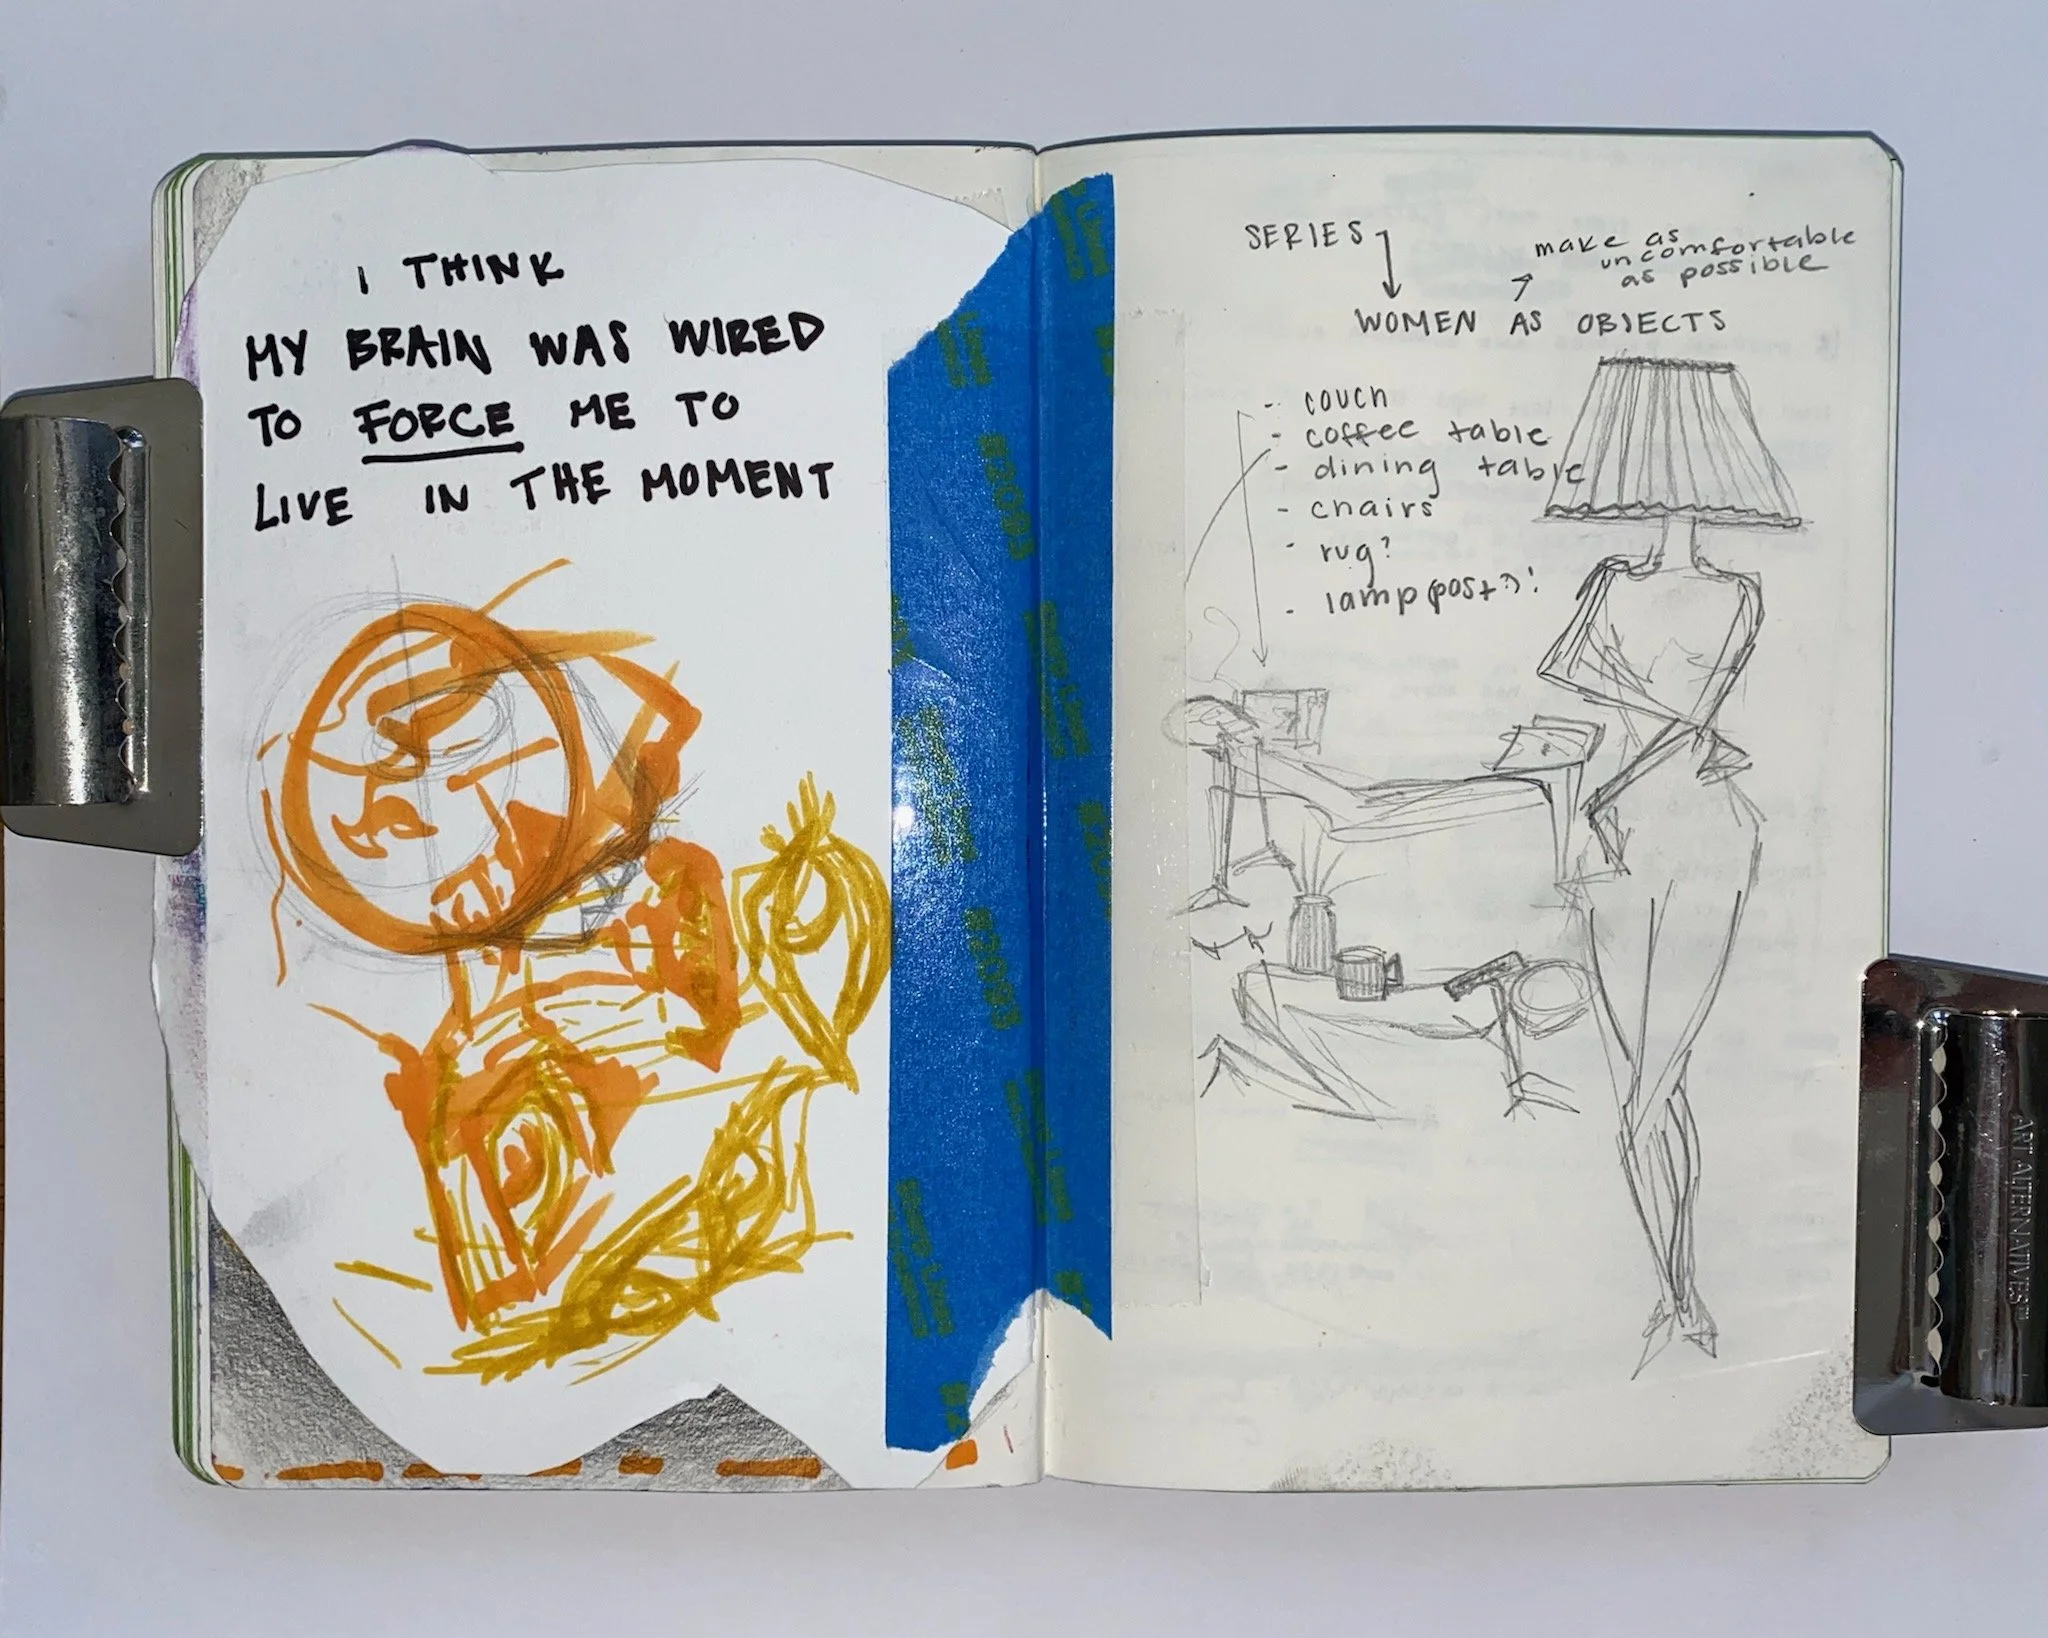 I THINK
MY BRAIN WAS WIRED
TO FORCE ME TO
LIVE IN THE MOMENT
SERIES
make as
uncomfortable
as possible
WOMEN AS OBJECTS
- couch
- coffee table
- dining table
- chairs
- rug?
- lamp(post?)!
ART ALTERNATIVES™